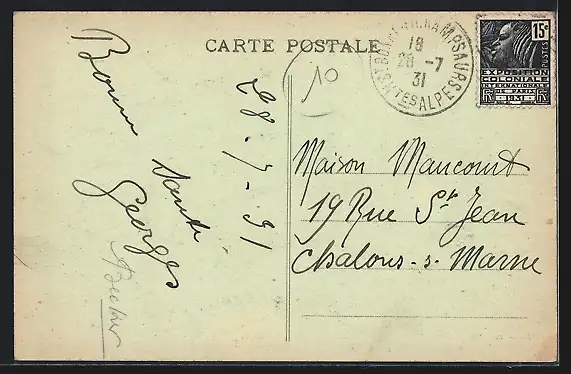 CARTE POSTALE
Bonne
Santé
Georges
28-7-31
10
ST BONNET-EN-CHAMPSAUR
18
28 -7
31
HTES ALPES
15c
POSTES
EXPOSITION
COLONIALE
INTERNATIONALE
DE PARIS
1931
Maison Mancourt
19 Rue St Jean
Chalons-s-Marne